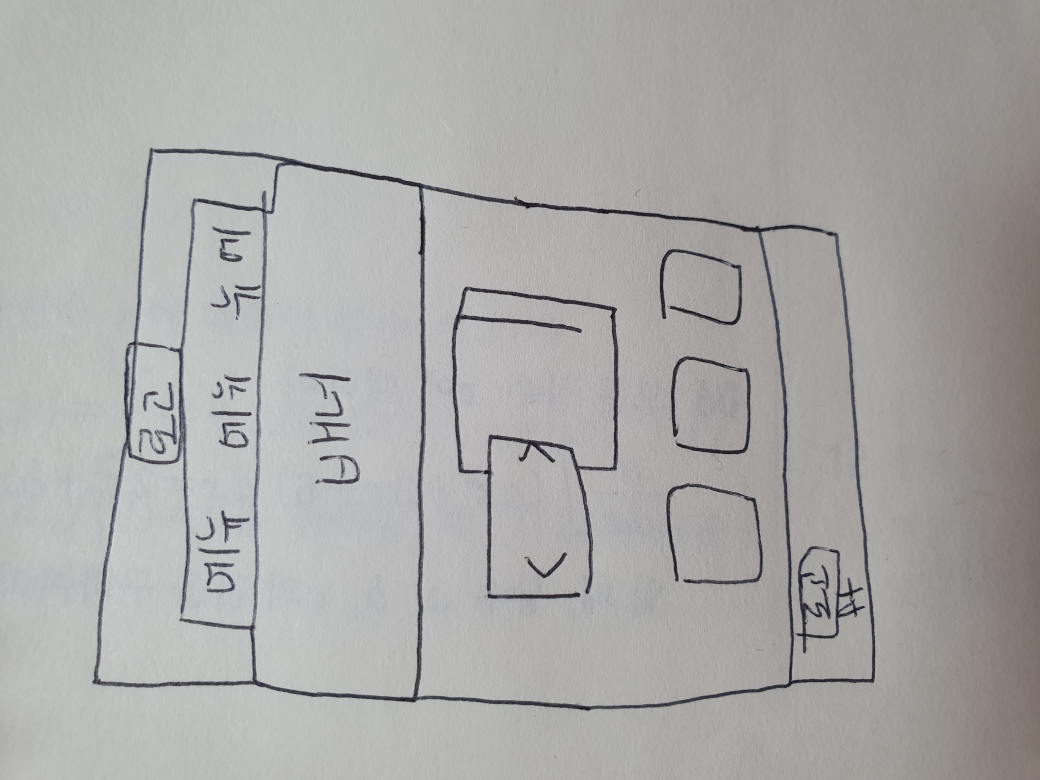 로고
메뉴 메뉴 메뉴
배너